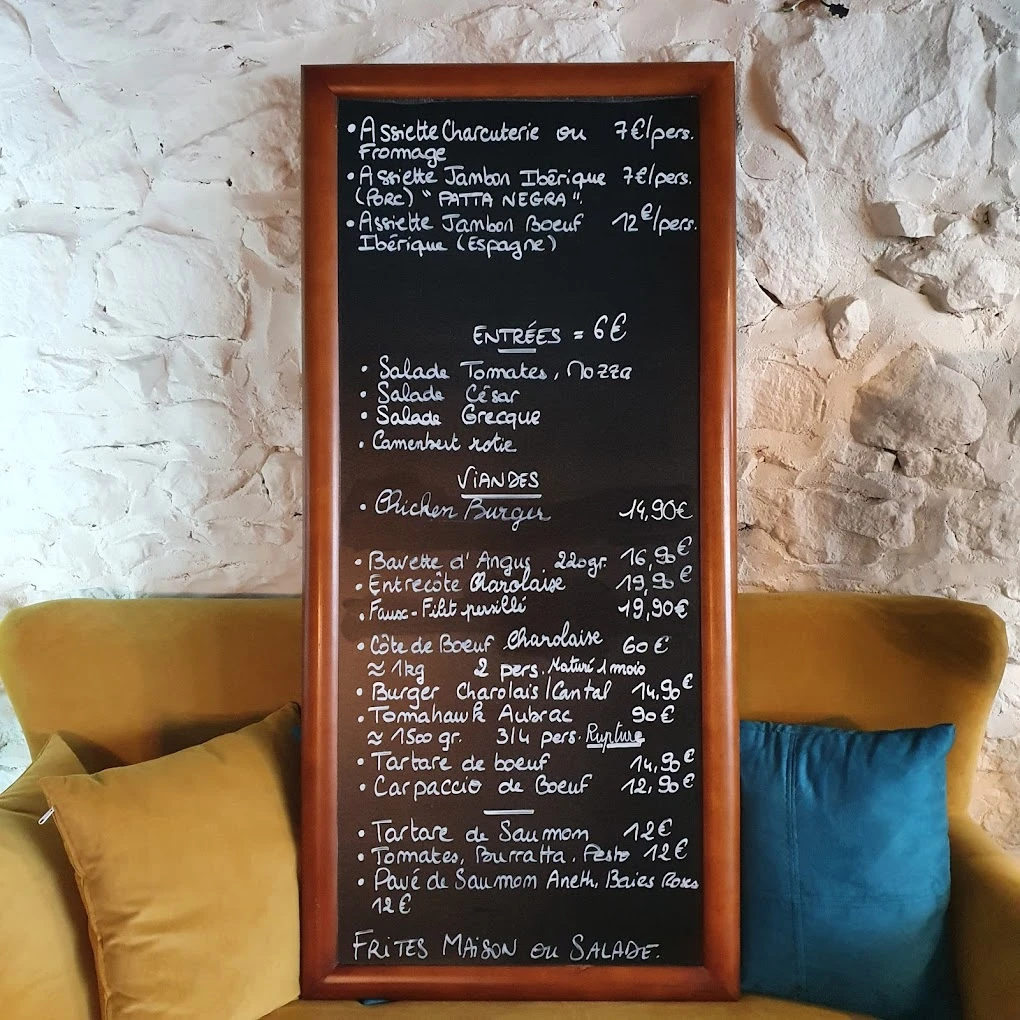 • Assiette Charcuterie ou 7€/pers.
Fromage
• Assiette Jambon Ibérique 7€/pers.
(Porc) " PATTA NEGRA ".
• Assiette Jambon Boeuf 12€/pers.
Ibérique (Espagne)
ENTRÉES = 6€
• Salade Tomates, Mozza
• Salade César
• Salade Grecque
• Camembert rotie
VIANDES
• Chicken Burger 14,90€
• Bavette d'Angus. 220gr. 16,90€
• Entrecôte Charolaise 19,90€
• Faux-Filet persillé 19,90€
• Côte de Boeuf Charolaise 60€
≈ 1kg 2 pers. Maturé 1 mois
• Burger Charolais/Cantal 14,90€
• Tomahawk Aubrac 90€
≈ 1500 gr. 3/4 pers. Rupture
• Tartare de boeuf 14,90€
• Carpaccio de Boeuf 12,90€
• Tartare de Saumon 12€
• Tomates, Burratta, Pesto 12€
• Pavé de Saumon Aneth, Baies Roses
12€
FRITES MAISON OU SALADE.